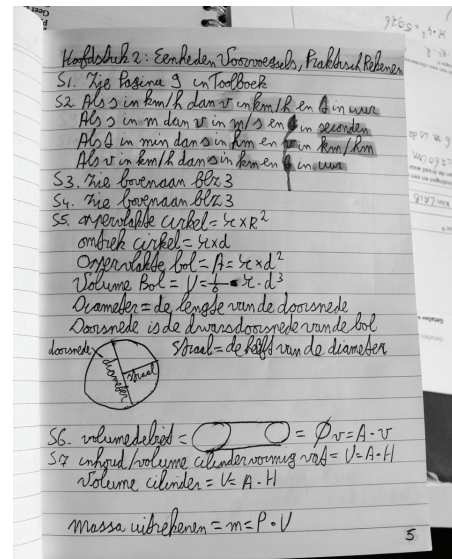 Hoofdstuk 2: Eenheden, Voorvoegsels, Praktisch Rekenen
S1. Zie Pagina 9 in Toolboek
S2. Als s in km/h dan v in km/h en t in uur
Als s in m dan v in m/s en t in seconden
Als t in min dan s in km en v in km/hm
Als v in km/h dan s in km en t in uur
S3. Zie bovenaan blz 3
S4. Zie bovenaan blz 3
S5. oppervlakte cirkel = π x R²
omtrek cirkel = π x d
Oppervlakte bol = A = π x d²
Volume Bol = V = 1/6 • π · d³
Diameter = de lengte van de doorsnede
Doorsnede is de dwarsdoorsnede van de bol
doorsnede straal = de helft van de diameter
diameter straal
S6. volumedebiet = = Øv = A · v
S7 inhoud/volume cilindervormig vat = V = A · H
Volume cilinder = V = A · H
Massa uitrekenen = m = P · V
5